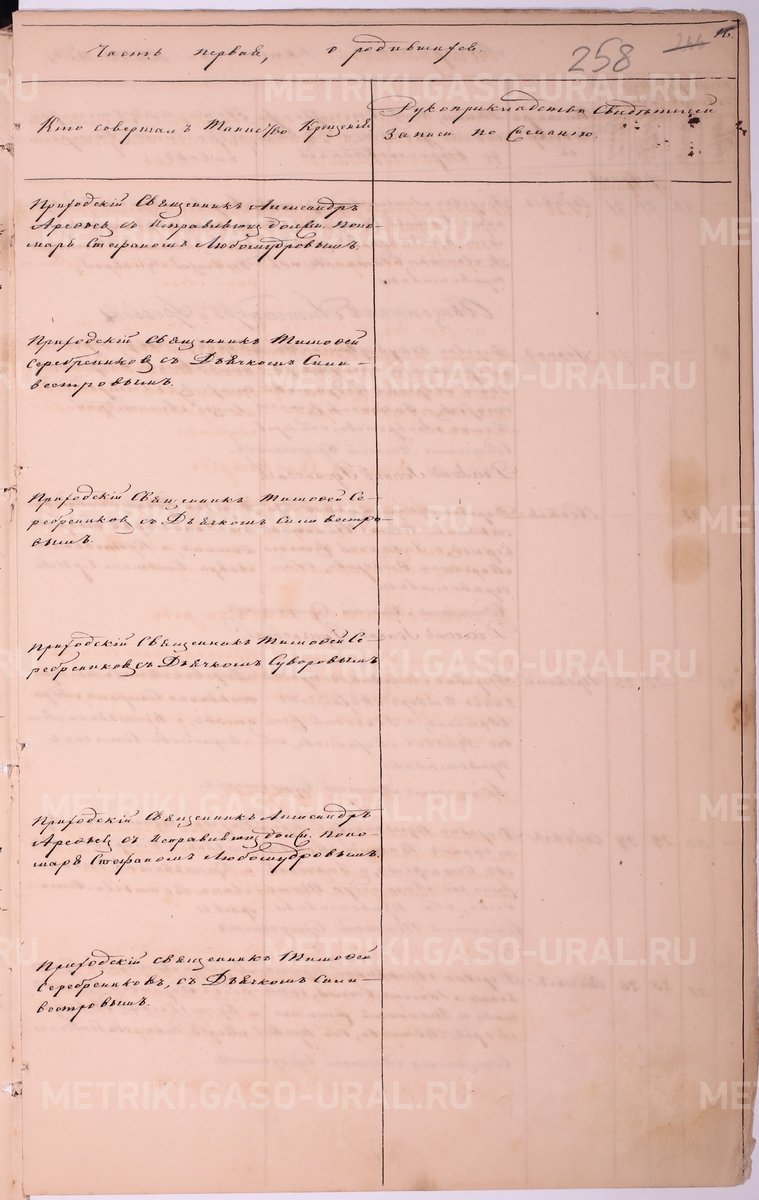 Часть первая, о родившихся.
258
16.
Кто совершалъ Таинство Крещенія
Рукоприкладство Свидѣтелей
Записи по Желанію.
Приходскій Священникъ Александръ
Арефьев съ Исправляющ. должн. Поно-
маря Стефаномъ Любомудровымъ.
Приходскій Священникъ Тимофей
Серебренниковъ съ Дьячкомъ Сили-
вестровымъ.
Приходскій Священникъ Тимофей Се-
ребренниковъ съ Дьячкомъ Силивестро-
вымъ.
Приходскій Священникъ Тимофей Се-
ребренниковъ съ Дьячкомъ Суворовымъ
Приходскій Священникъ Александръ
Арефьев съ Исправляющ. должн. Поно-
маря Стефаномъ Любомудровымъ.
Приходскій Священникъ Тимофей
Серебренниковъ, съ Дьячкомъ Сили-
вестровымъ.
METRIKI.GASO-URAL.RU